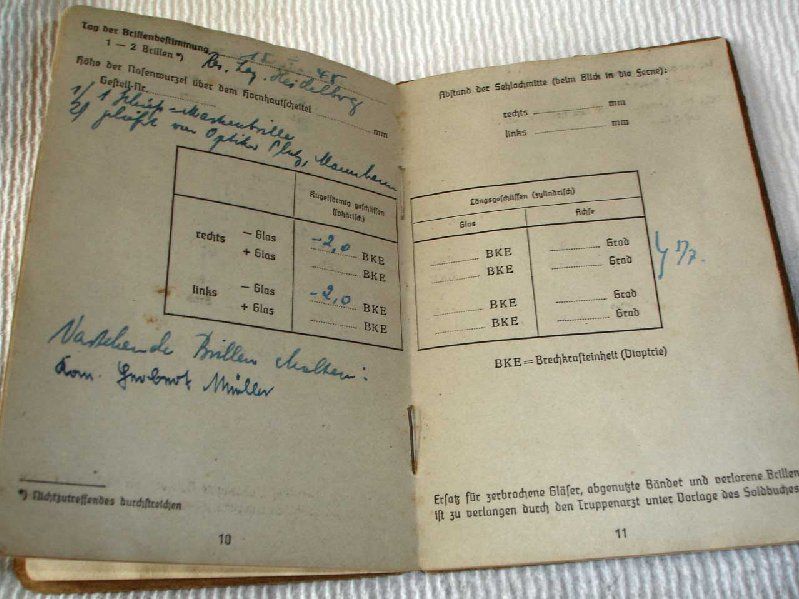 Tag der Brillenbestimmung
1 — 2 Brillen*)
Res. Laz. Heidelberg
Höhe der Nasenwurzel über dem Hornhautscheitel
Gestell-Nr. mm
1)
2)
Mannheim
Kugelförmig geschliffen
(sphärisch)
rechts — Glas -2,0 BKE
+ Glas BKE
links — Glas -2,0 BKE
+ Glas BKE
Vorstehende Brillen erhalten:
Herbert Müller
*) Nichtzutreffendes durchstreichen
10
Abstand der Sehlochmitte (beim Blick in die Ferne):
rechts mm
links mm
Längsgeschliffen (zylindrisch)
Glas Achse
BKE Grad
BKE Grad
BKE Grad
BKE Grad
BKE = Brechkrafteinheit (Dioptrie)
Ersatz für zerbrochene Gläser, abgenutzte Bänder und verlorene Brillen
ist zu verlangen durch den Truppenarzt unter Vorlage des Soldbuches
11